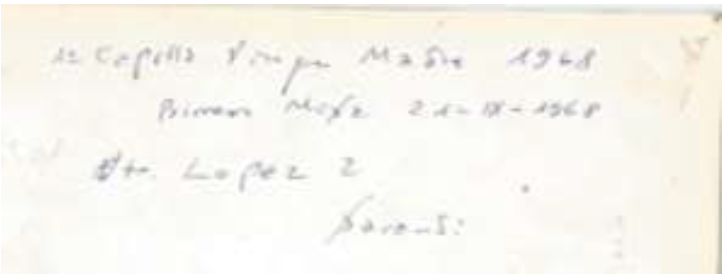 1ª Capilla Virgen Madre 1968
Primera Misa 21-IX-1968
Vte. Lopez 2